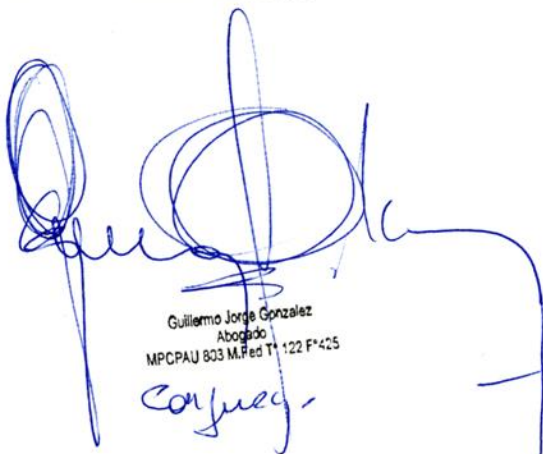 Guillermo Jorge Gonzalez
Abogado
MPCPAU 803 M.Fed T° 122 F°425
Conjuez.